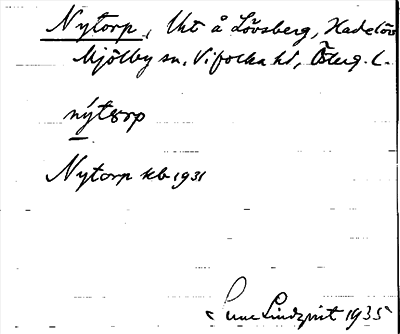 Nytorp, Uht å Lövsberg, Hadelöv
Mjölby sn. Vifolka hd, Österg. L.
nýtɷrp
Nytorp kb 1931
Sune Lindqvist 1935